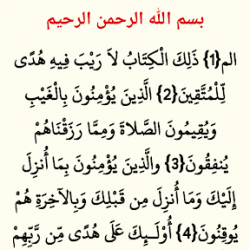 بسم الله الرحمن الرحيم
الم{1} ذَلِكَ الْكِتَابُ لاَ رَيْبَ فِيهِ هُدًى
لِّلْمُتَّقِينَ{2} الَّذِينَ يُؤْمِنُونَ بِالْغَيْبِ
وَيُقِيمُونَ الصَّلاةَ وَمِمَّا رَزَقْنَاهُمْ
يُنفِقُونَ{3} والَّذِينَ يُؤْمِنُونَ بِمَا أُنزِلَ
إِلَيْكَ وَمَا أُنزِلَ مِن قَبْلِكَ وَبِالآخِرَةِ هُمْ
يُوقِنُونَ{4} أُوْلَـئِكَ عَلَى هُدًى مِّن رَّبِّهِمْ